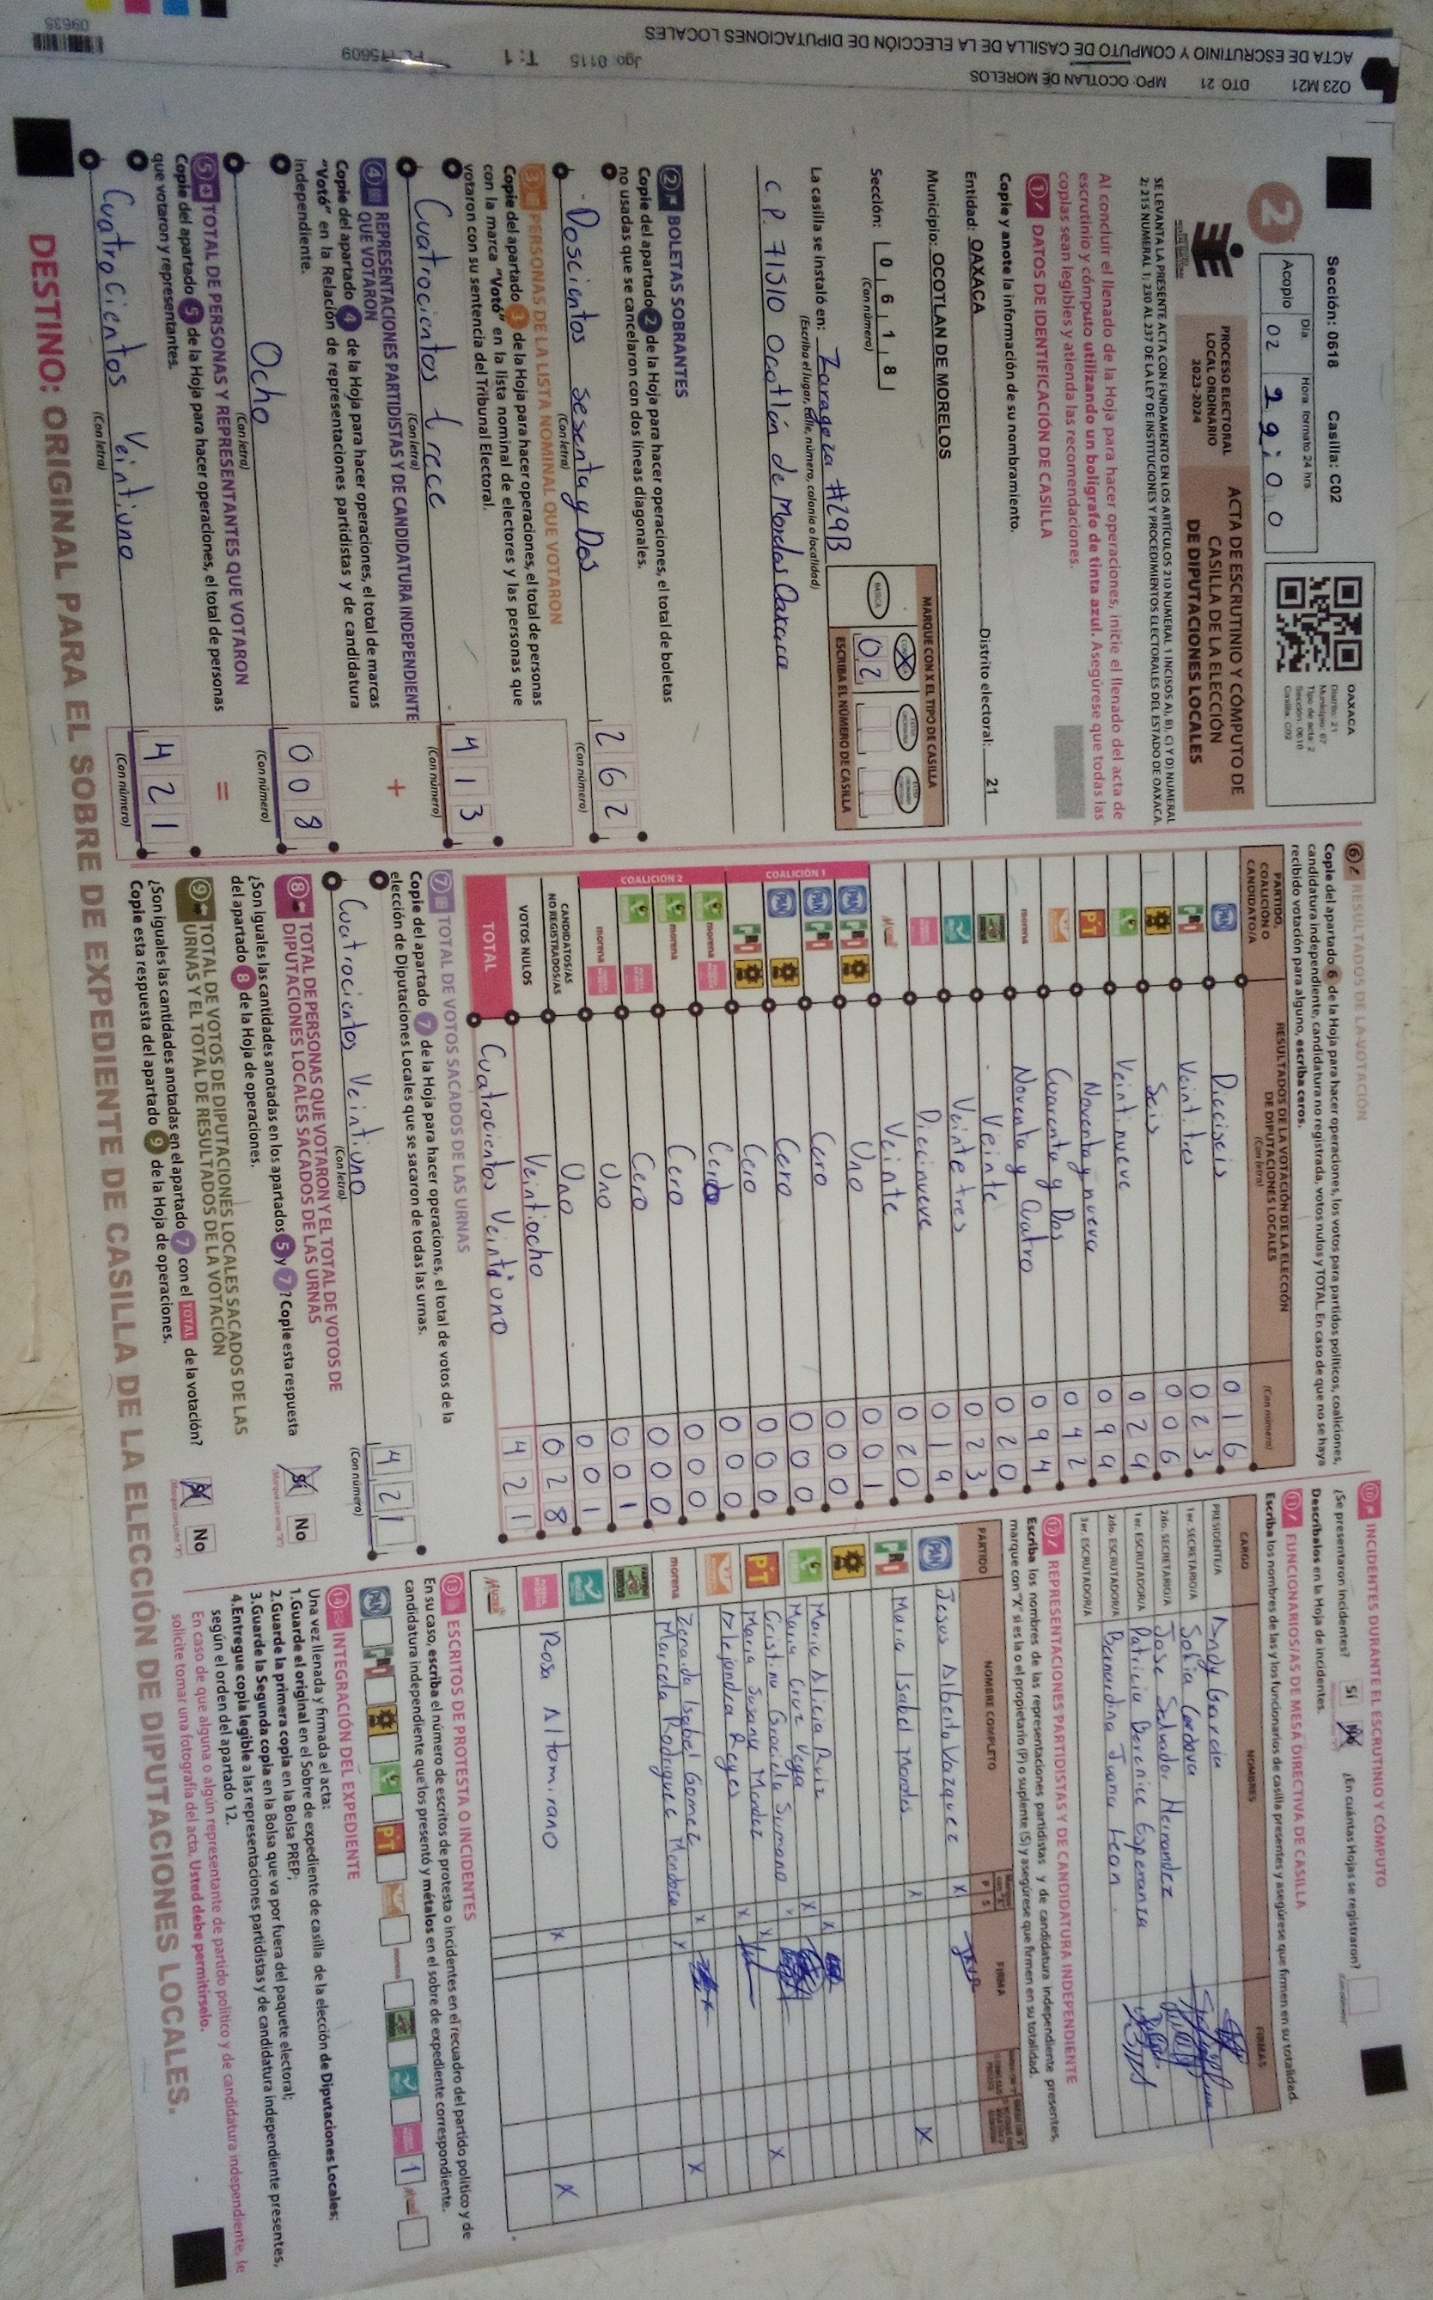 O23 M21 DTO 21 MPO: OCOTLAN DE MORELOS Jgo: 0115 T: 1
ACTA DE ESCRUTINIO Y COMPUTO DE CASILLA DE LA ELECCIÓN DE DIPUTACIONES LOCALES
09635
Sección: 0618 Casilla: C02
Día Hora: formato 24 hrs.
Acopio 02 22:00
2
OAXACA
Distrito: 21
Municipio: 67
Tipo de acta: 2
Sección: 0618
Casilla: C02
PROCESO ELECTORAL
LOCAL ORDINARIO
2023-2024
ACTA DE ESCRUTINIO Y CÓMPUTO DE
CASILLA DE LA ELECCIÓN
DE DIPUTACIONES LOCALES
SE LEVANTA LA PRESENTE ACTA CON FUNDAMENTO EN LOS ARTÍCULOS 210 NUMERAL 1 INCISOS A), B), C) Y D) NUMERAL
2; 215 NUMERAL 1; 230 AL 237 DE LA LEY DE INSTITUCIONES Y PROCEDIMIENTOS ELECTORALES DEL ESTADO DE OAXACA.
Al concluir el llenado de la Hoja para hacer operaciones, inicie el llenado del acta de
escrutinio y cómputo utilizando un bolígrafo de tinta azul. Asegúrese que todas las
copias sean legibles y atienda las recomendaciones.
1 DATOS DE IDENTIFICACIÓN DE CASILLA
Copie y anote la información de su nombramiento.
Entidad: OAXACA Distrito electoral: 21
Municipio: OCOTLAN DE MORELOS
Sección: 0 6 1 8
(Con número)
MARQUE CON X EL TIPO DE CASILLA
BÁSICA
ESCRIBA EL NÚMERO DE CASILLA
02
La casilla se instaló en: Zaragoza #29B
(Escriba el lugar, calle, número, colonia o localidad)
C.P. 71510 Ocotlán de Morelos Oaxaca
2 BOLETAS SOBRANTES
Copie del apartado 2 de la Hoja para hacer operaciones, el total de boletas
no usadas que se cancelaron con dos líneas diagonales.
Doscientos sesenta y Dos 262
(Con letra) (Con número)
3 PERSONAS DE LA LISTA NOMINAL QUE VOTARON
Copie del apartado 3 de la Hoja para hacer operaciones, el total de personas
con la marca "Votó" en la lista nominal de electores y las personas que
votaron con su sentencia del Tribunal Electoral.
Cuatrocientos trece 413
(Con letra) (Con número)
4 REPRESENTACIONES PARTIDISTAS Y DE CANDIDATURA INDEPENDIENTE
QUE VOTARON
+
Copie del apartado 4 de la Hoja para hacer operaciones, el total de marcas
"Votó" en la Relación de representaciones partidistas y de candidatura
independiente.
Ocho 008
(Con letra) (Con número)
5 TOTAL DE PERSONAS Y REPRESENTANTES QUE VOTARON
=
Copie del apartado 5 de la Hoja para hacer operaciones, el total de personas
que votaron y representantes.
Cuatrocientos Veintiuno 421
(Con letra) (Con número)
6 RESULTADOS DE LA VOTACIÓN
Copie del apartado 6 de la Hoja para hacer operaciones, los votos para partidos políticos, coaliciones,
candidatura independiente, candidatura no registrada, votos nulos y TOTAL. En caso de que no se haya
recibido votación para alguno, escriba ceros.
PARTIDO, COALICIÓN O CANDIDATO/A
RESULTADOS DE LA VOTACIÓN DE LA ELECCIÓN DE DIPUTACIONES LOCALES
(Con letra) (Con número)
PAN Dieciseis 016
PRI Veintitres 023
Seis 006
Veintinueve 029
PT Noventa y nueve 099
Cuarenta y Dos 042
morena Noventa y cuatro 094
Veinte 020
Veinte tres 023
Diecinueve 019
Veinte 020
COALICIÓN 1
PAN PRI Uno 001
PAN PRI Cero 000
PAN Cero 000
PRI Cero 000
COALICIÓN 2
morena Cero 000
morena Cero 000
Cero 000
morena Uno 001
CANDIDATOS/AS NO REGISTRADOS/AS Uno 001
VOTOS NULOS Veintiocho 028
TOTAL Cuatrocientos Veintiuno 421
7 TOTAL DE VOTOS SACADOS DE LAS URNAS
Copie del apartado 7 de la Hoja para hacer operaciones, el total de votos de la
elección de Diputaciones Locales que se sacaron de todas las urnas.
Cuatrocientos Veintiuno 421
(Con letra) (Con número)
8 TOTAL DE PERSONAS QUE VOTARON Y EL TOTAL DE VOTOS DE
DIPUTACIONES LOCALES SACADOS DE LAS URNAS
¿Son iguales las cantidades anotadas en los apartados 5 y 7? Copie esta respuesta
del apartado 8 de la Hoja de operaciones.
Sí No
9 TOTAL DE VOTOS DE DIPUTACIONES LOCALES SACADOS DE LAS
URNAS Y EL TOTAL DE RESULTADOS DE LA VOTACIÓN
¿Son iguales las cantidades anotadas en el apartado 7 con el TOTAL de la votación?
Copie esta respuesta del apartado 9 de la Hoja de operaciones.
Sí No
10 INCIDENTES DURANTE EL ESCRUTINIO Y CÓMPUTO
¿Se presentaron incidentes? Sí No ¿En cuántas Hojas se registraron?
Descríbalos en la Hoja de incidentes.
11 FUNCIONARIOS/AS DE MESA DIRECTIVA DE CASILLA
Escriba los nombres de las y los funcionarios de casilla presentes y asegúrese que firmen en su totalidad.
CARGO NOMBRES FIRMAS
PRESIDENTE/A Andy Garcia
1er. SECRETARIO/A Sofia Cordova
2do. SECRETARIO/A Jose Salvador Hernandez
1er. ESCRUTADOR/A Patricia Berenice Esperanza
2do. ESCRUTADOR/A Bernardina Juana Leon
3er. ESCRUTADOR/A
12 REPRESENTACIONES PARTIDISTAS Y DE CANDIDATURA INDEPENDIENTE
Escriba los nombres de las representaciones partidistas y de candidatura independiente presentes,
marque con "X" si es la o el propietario (P) o suplente (S) y asegúrese que firmen en su totalidad.
PARTIDO NOMBRE COMPLETO P S FIRMA
PAN Jesus Alberto Vazquez X
PRI Maria Isabel Montes X X
Maria Alicia Ruiz X
Maria Cruz Vega X
PT Cristina Graciela Sumano X X
Maria Susana Mendez X
Alejandra Reyes X
morena Zenaida Isabel Gomez X X
Marcela Rodriguez Mendoza X
Rosa Altamirano X X
13 ESCRITOS DE PROTESTA O INCIDENTES
En su caso, escriba el número de escritos de protesta o incidentes en el recuadro del partido político y de
candidatura independiente que los presentó y métalos en el sobre de expediente correspondiente.
PAN PRI PT 1
14 INTEGRACIÓN DEL EXPEDIENTE
Una vez llenada y firmada el acta:
1.Guarde el original en el Sobre de expediente de casilla de la elección de Diputaciones Locales;
2.Guarde la primera copia en la Bolsa PREP;
3.Guarde la Segunda copia en la Bolsa que va por fuera del paquete electoral;
4.Entregue copia legible a las representaciones partidistas y de candidatura independiente presentes,
según el orden del apartado 12.
En caso de que alguna o algún representante de partido político y de candidatura independiente, le
solicite tomar una fotografía del acta, Usted debe permitírselo.
DESTINO: ORIGINAL PARA EL SOBRE DE EXPEDIENTE DE CASILLA DE LA ELECCIÓN DE DIPUTACIONES LOCALES.